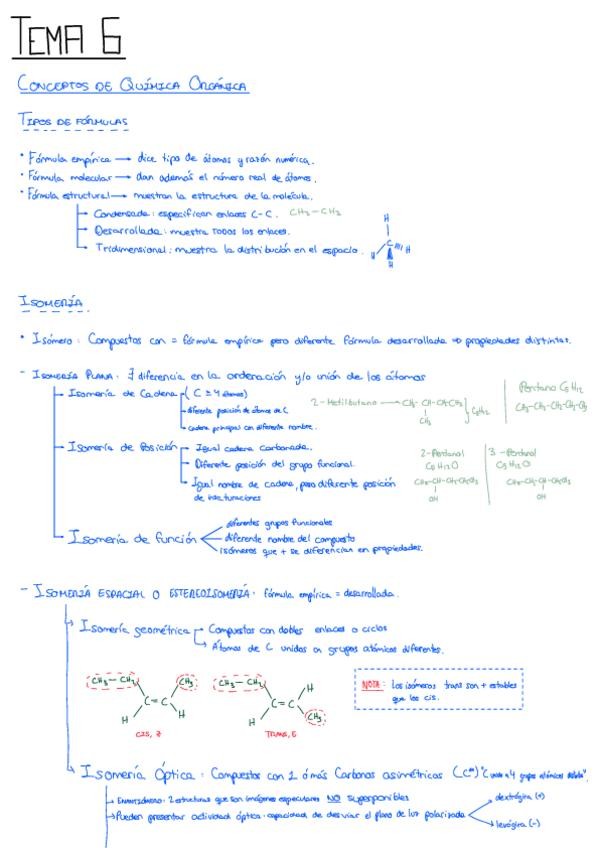 TEMA 6
CONCEPTOS DE QUÍMICA ORGÁNICA
TIPOS DE FÓRMULAS
• Fórmula empírica → dice tipo de átomos y razón numérica.
• Fórmula molecular → dan además el número real de átomos.
• Fórmula estructural → muestran la estructura de la molécula.
Condensada: especifican enlaces C-C. CH3-CH3
Desarrollada: muestra TODOS los enlaces.
Tridimensional: muestra la distribución en el espacio.
H
C
H
H
H
ISOMERÍA.
• Isómero: Compuestos con = fórmula empírica pero diferente fórmula desarrollada ⇒ propiedades distintas.
- ISOMERÍA PLANA: ∃ diferencia en la ordenación y/o unión de los átomos
Isomería de Cadena (C ≥ 4 átomos)
diferente posición de átomos de C.
cadena principal con diferente nombre.
2-Metilbutano → CH3-CH-CH2CH3
CH3
C5H12
Pentano C5H12
CH3-CH2-CH2-CH2-CH3
Isomería de Posición
Igual cadena carbonada.
Diferente posición del grupo funcional.
Igual nombre de cadena, pero diferente posición
de instauraciones
2-Pentanol
C5H12O
CH3-CH-CH2-CH2CH3
OH
3-Pentanol
C5H12O
CH3CH2-CH-CH2CH3
OH
Isomería de función
diferentes grupos funcionales
diferente nombre del compuesto
isómeros que + se diferencian en propiedades.
- ISOMERÍA ESPACIAL O ESTEREOISOMERÍA: fórmula empírica = desarrollada.
Isomería geométrica
Compuestos con dobles enlaces o ciclos
Átomos de C unidos a grupos atómicos diferentes.
CH3-CH2
CH3
C=C
H
H
CIS, Z
CH3-CH2
H
C=C
H
CH3
TRANS, E
NOTA: Los isómeros trans son + estables
que los cis.
Isomería Óptica: Compuestos con 1 ó más Carbonos asimétricos (C*) "C unido a 4 grupos atómicos distintos".
ENANTIÓMERO: 2 estructuras que son imágenes especulares NO superponibles
Pueden presentar actividad óptica: capacidad de desviar el plano de luz polarizada
dextrógira (+)
levógira (-)